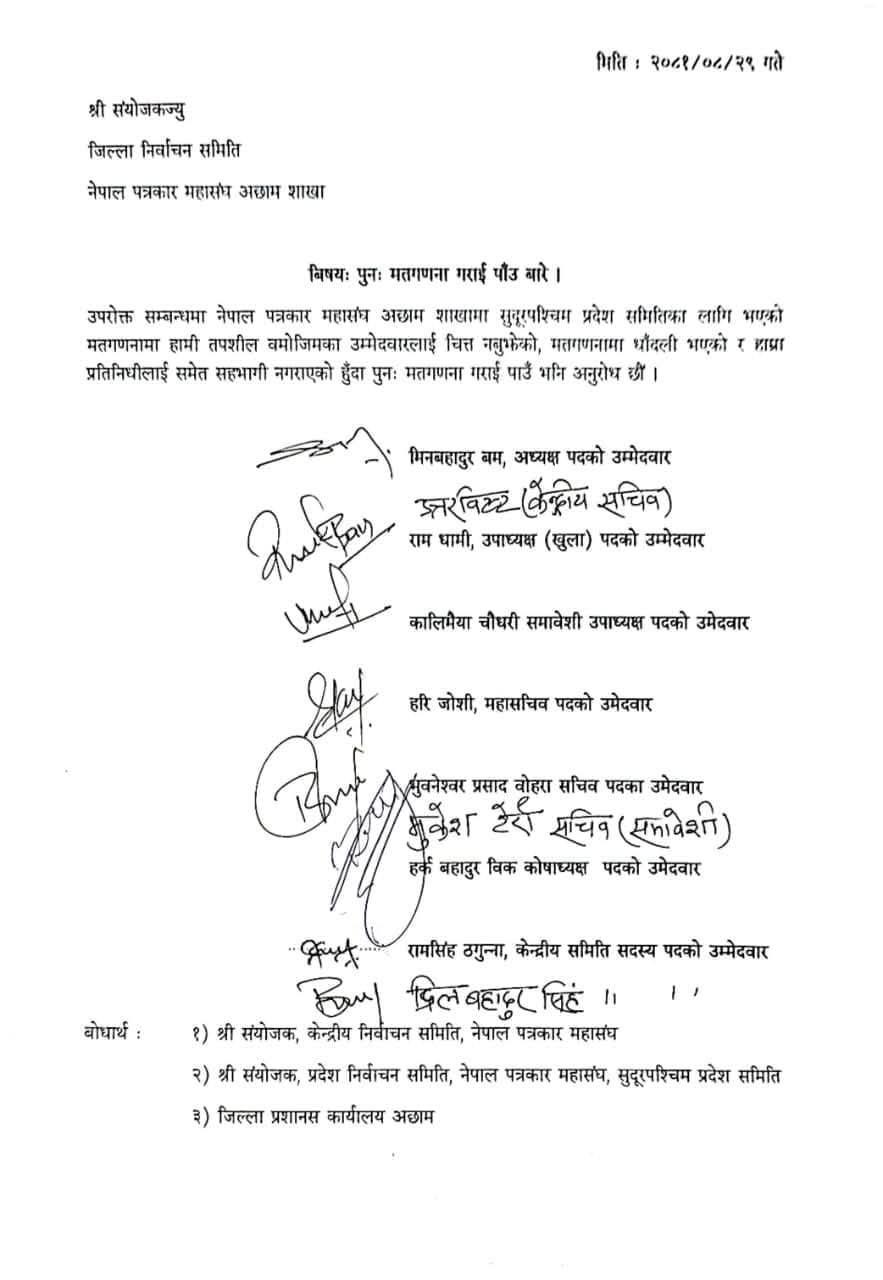 मिति : २०८१/०८/२९ गते
श्री संयोजकज्यु
जिल्ला निर्वाचन समिति
नेपाल पत्रकार महासंघ अछाम शाखा
बिषयः पुनः मतगणना गराई पाँउ बारे ।
उपरोक्त सम्बन्धमा नेपाल पत्रकार महासंघ अछाम शाखामा सुदूरपश्चिम प्रदेश समितिका लागि भएको
मतगणनामा हामी तपशील वमोजिमका उम्मेदवारलाई चित्त नबुझेको, मतगणनामा धाँदली भएको र हाम्रा
प्रतिनिधीलाई समेत सहभागी नगराएको हुँदा पुनः मतगणना गराई पाउँ भनि अनुरोध छौं ।
मिनबहादुर बम, अध्यक्ष पदको उम्मेदवार
(केन्द्रीय सचिव)
राम धामी, उपाध्यक्ष (खुला) पदको उम्मेदवार
कालिमैया चौधरी समावेशी उपाध्यक्ष पदको उमेदवार
हरि जोशी, महासचिव पदको उमेदवार
भुवनेश्वर प्रसाद वोहरा सचिव पदका उमेदवार
मुकेश टेर्रा सचिव (समावेशी)
हर्क बहादुर विक कोषाध्यक्ष पदको उमेदवार
रामसिंह ठगुन्ना, केन्द्रीय समिति सदस्य पदको उम्मेदवार
दिलबहादुर सिंह ।। ।।
बोधार्थ : १) श्री संयोजक, केन्द्रीय निर्वाचन समिति, नेपाल पत्रकार महासंघ
२) श्री संयोजक, प्रदेश निर्वाचन समिति, नेपाल पत्रकार महासंघ, सुदूरपश्चिम प्रदेश समिति
३) जिल्ला प्रशानस कार्यालय अछाम